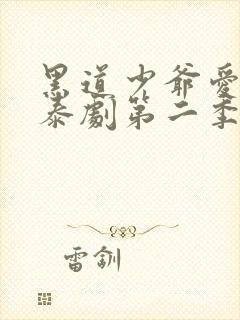 黑道少爺愛
泰劇第二季
雷釧